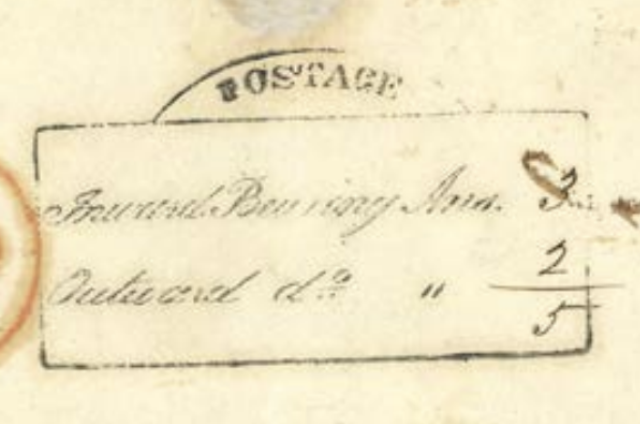 POSTAGE
Inward Bearing Ans. 3
Outward do " 2
5